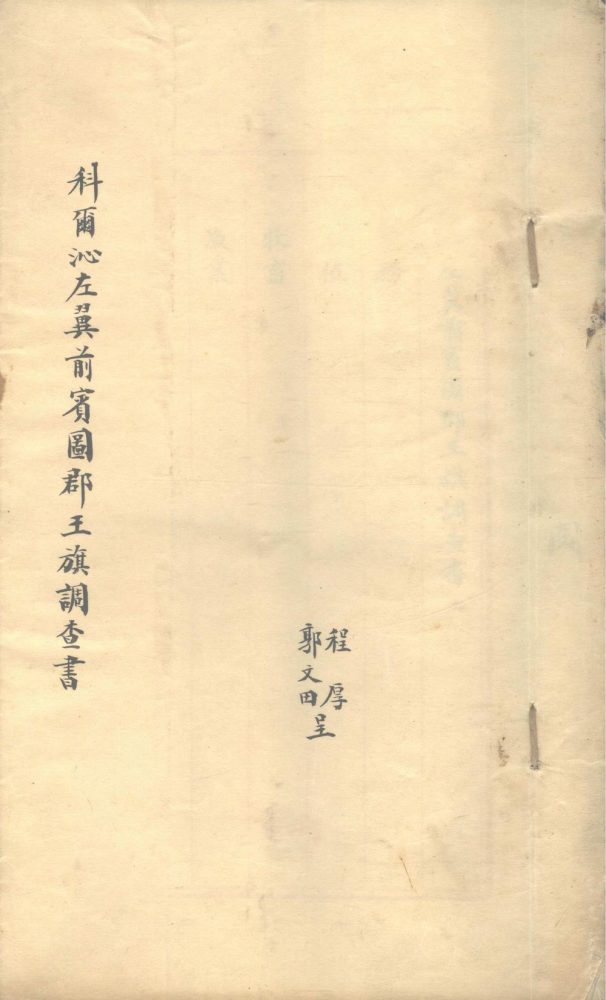 科爾沁左翼前賓圖郡王旗調查書
程厚
郭文田
呈